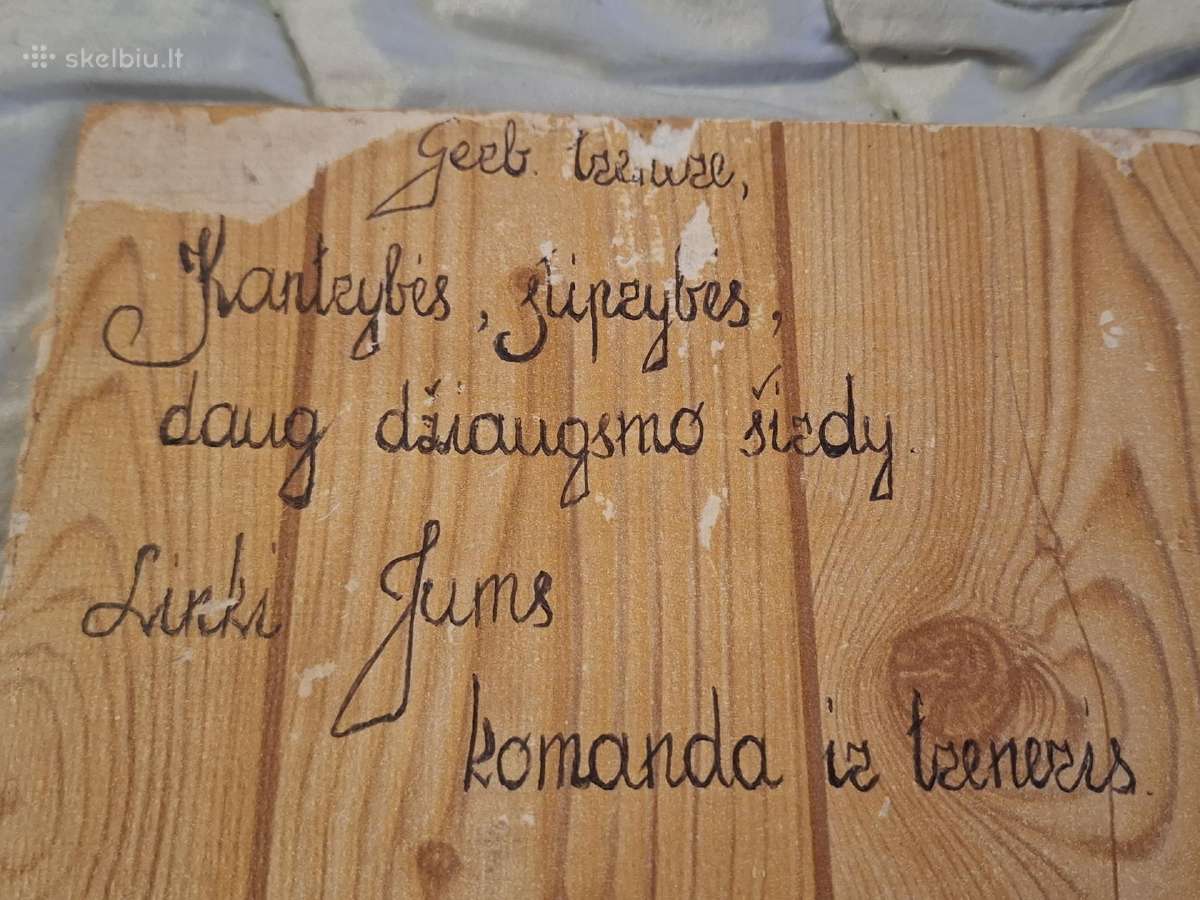 skelbiu.lt
Gerb.
Kantrybės, stiprybės,
daug džiaugsmo širdy.
Linki Jums
komanda ir treneris.